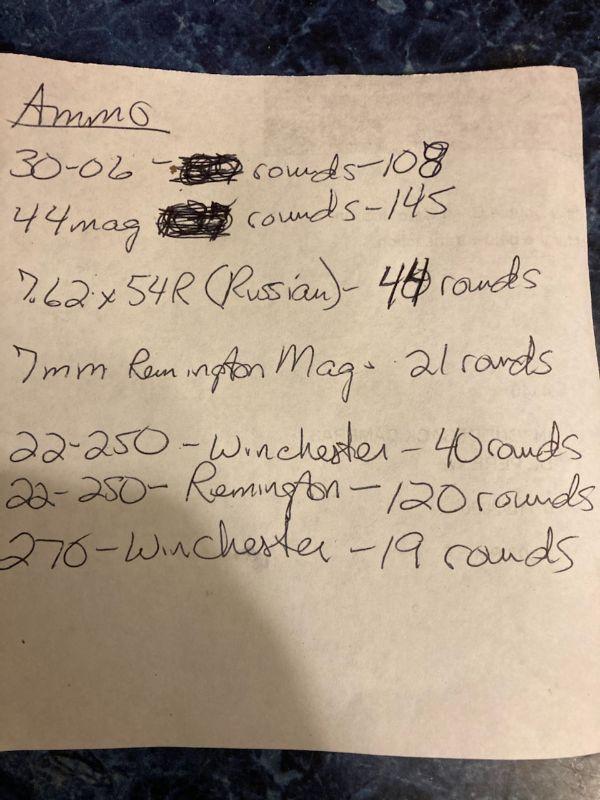 Ammo
30-06 - rounds - 108
44mag rounds - 145
7.62 x 54R (Russian) - 44 rounds
7mm Remington Mag - 21 rounds
22-250 - Winchester - 40 rounds
22-250 - Remington - 120 rounds
270 - Winchester - 19 rounds